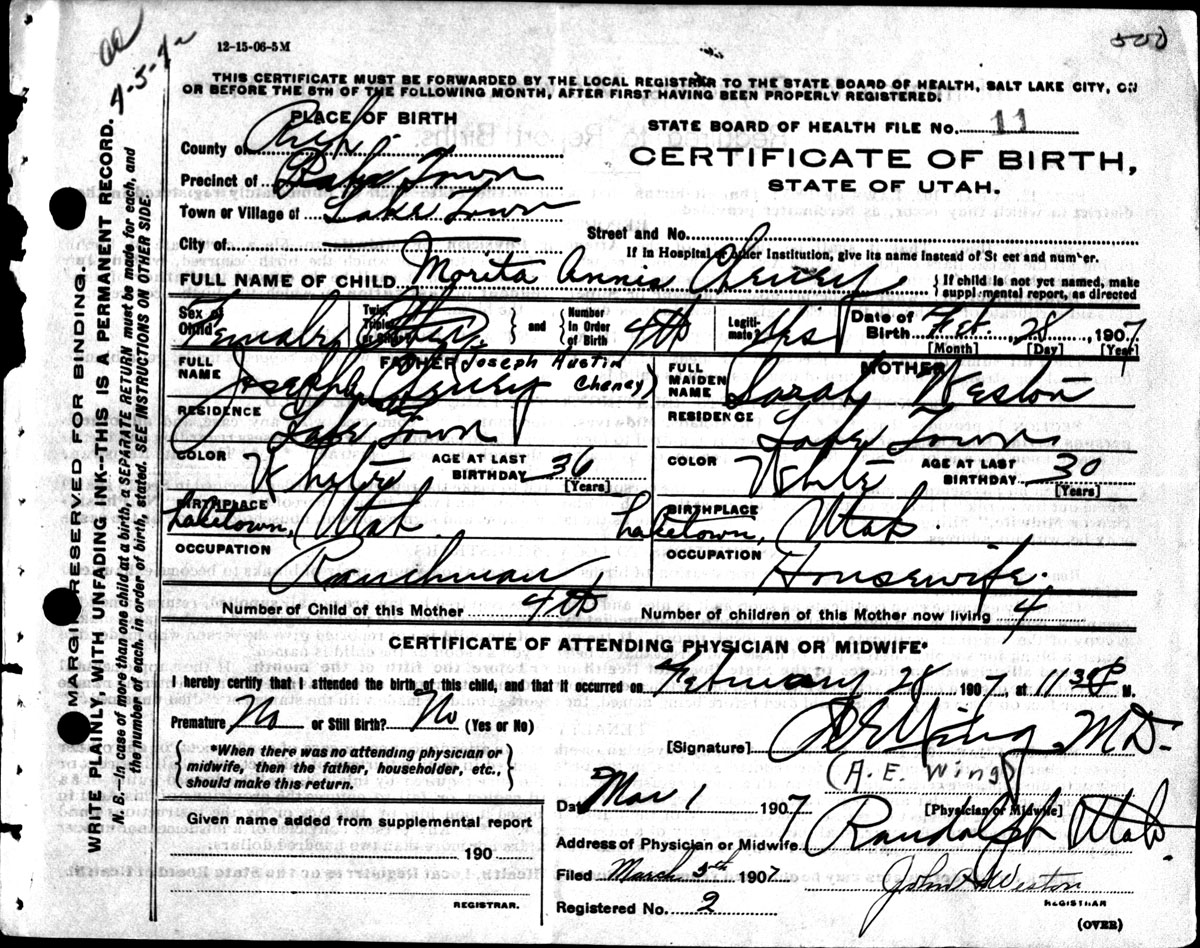 500
12-15-06-5M
4-5-4
THIS CERTIFICATE MUST BE FORWARDED BY THE LOCAL REGISTRAR TO THE STATE BOARD OF HEALTH, SALT LAKE CITY, ON
OR BEFORE THE 5TH OF THE FOLLOWING MONTH, AFTER FIRST HAVING BEEN PROPERLY REGISTERED.
PLACE OF BIRTH
STATE BOARD OF HEALTH FILE No. 11
County of Rich
CERTIFICATE OF BIRTH,
STATE OF UTAH.
Precinct of Lake Town
Town or Village of Lake Town
City of
Street and No.
If in Hospital or other Institution, give its name instead of Street and number.
FULL NAME OF CHILD Morita Annie Cheney
{ If child is not yet named, make
supplemental report, as directed
Sex of Child Female
Twin, Triplet or Other
} and { Number in Order of Birth 4th
Legitimate? Yes
Date of Birth Feb. 28 1907
[Month] [Day] [Year]
FATHER
FULL NAME Joseph Cheney (Joseph Austin Cheney)
MOTHER
FULL MAIDEN NAME Sarah Weston
RESIDENCE Lake Town
RESIDENCE Lake Town
COLOR White AGE AT LAST BIRTHDAY 36 [Years]
COLOR White AGE AT LAST BIRTHDAY 30 [Years]
BIRTHPLACE Laketown, Utah
BIRTHPLACE Laketown, Utah
OCCUPATION Ranchman
OCCUPATION Housewife.
Number of Child of this Mother 4th
Number of children of this Mother now living 4
CERTIFICATE OF ATTENDING PHYSICIAN OR MIDWIFE*
I hereby certify that I attended the birth of this child, and that it occurred on February 28 1907 at 11 30 P M.
Premature No or Still Birth? No (Yes or No)
{ *When there was no attending physician or
midwife, then the father, householder, etc.,
should make this return. }
[Signature] A E Wing M D.
(A. E. Wing)
[Physician or Midwife]
Date Mar 1 1907
Address of Physician or Midwife Randolph Utah.
Given name added from supplemental report
190
REGISTRAR.
Filed March 5th 1907
John Weston
REGISTRAR
Registered No. 2
(OVER)
MARGIN RESERVED FOR BINDING.
WRITE PLAINLY, WITH UNFADING INK--THIS IS A PERMANENT RECORD.
N. B.—In case of more than one child at a birth, a SEPARATE RETURN must be made for each, and
the number of each, in order of birth, stated. SEE INSTRUCTIONS ON OTHER SIDE.